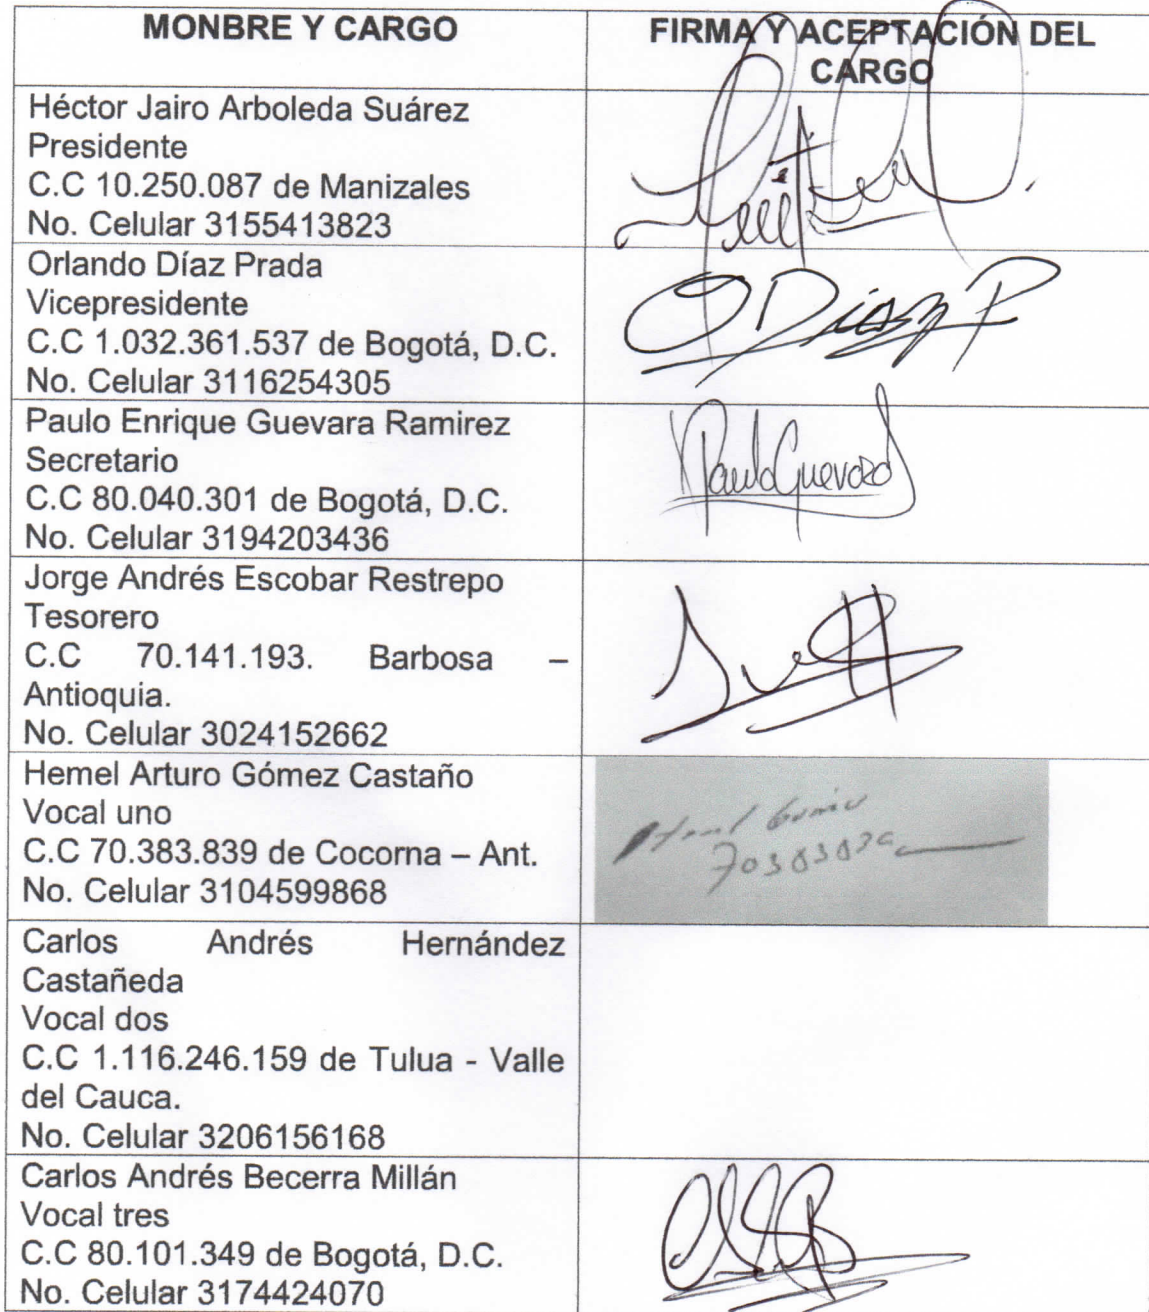 MONBRE Y CARGO
FIRMA Y ACEPTACIÓN DEL
CARGO
Héctor Jairo Arboleda Suárez
Presidente
C.C 10.250.087 de Manizales
No. Celular 3155413823
Orlando Díaz Prada
Vicepresidente
C.C 1.032.361.537 de Bogotá, D.C.
No. Celular 3116254305
O Diaz P
Paulo Enrique Guevara Ramirez
Secretario
C.C 80.040.301 de Bogotá, D.C.
No. Celular 3194203436
Paulo Guevara
Jorge Andrés Escobar Restrepo
Tesorero
C.C 70.141.193. Barbosa –
Antioquia.
No. Celular 3024152662
Hemel Arturo Gómez Castaño
Vocal uno
C.C 70.383.839 de Cocorna – Ant.
No. Celular 3104599868
Carlos Andrés Hernández
Castañeda
Vocal dos
C.C 1.116.246.159 de Tulua - Valle
del Cauca.
No. Celular 3206156168
Carlos Andrés Becerra Millán
Vocal tres
C.C 80.101.349 de Bogotá, D.C.
No. Celular 3174424070